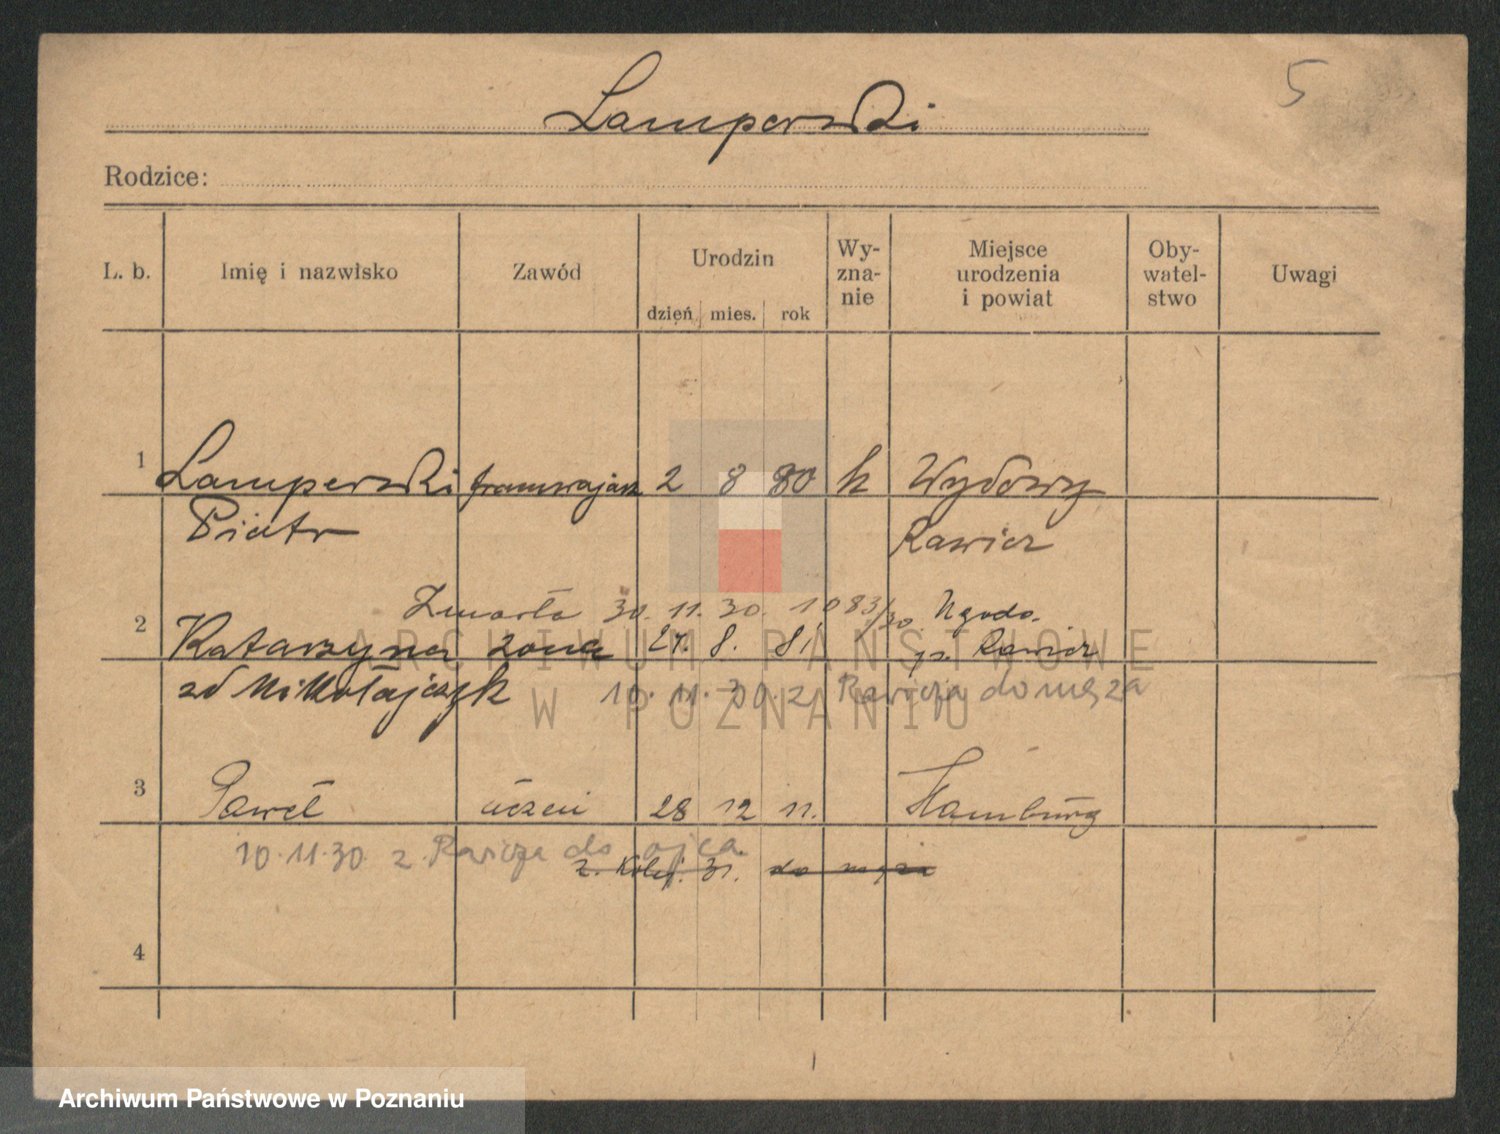 5
Lamperski
Rodzice:
L. b. Imię i nazwisko Zawód Urodzin dzień mies. rok Wy-zna-nie Miejsce urodzenia i powiat Oby-watel-stwo Uwagi
1 Lamperski tramwajarz 2 8 80 k Wydowy
Piotr Rawicz
Zmarła 30. 11. 30. 1083/30
2 Katarzyna żona 27. 8. 81 pz. Rawicz
zd Mikołajczyk 10. 11. 30. z Rawicza do męża
3 Paweł uczeń 28 12 11. Hamburg
10.11.30 z Rawicza do ojca
z. 31. do męża
4
ARCHIWUM PAŃSTWOWE
W POZNANIU
Archiwum Państwowe w Poznaniu